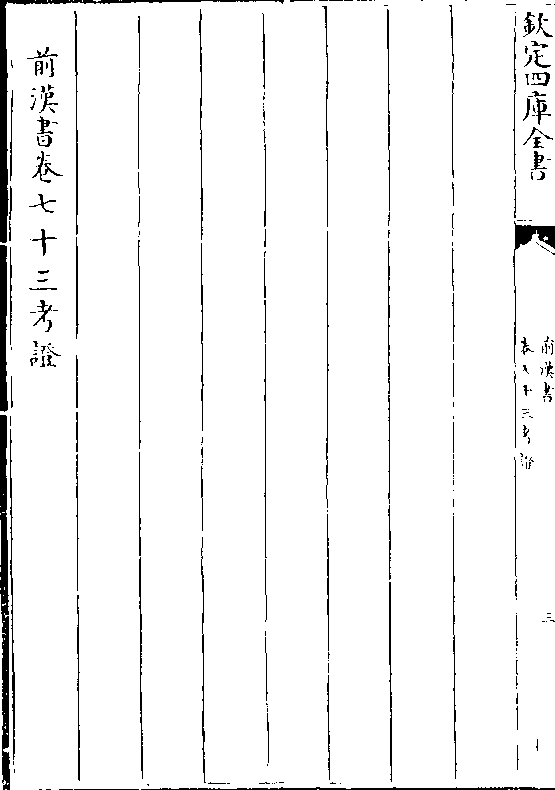 欽定四庫全書
前漢書
卷七十三考證
三
前漢書卷七十三考證